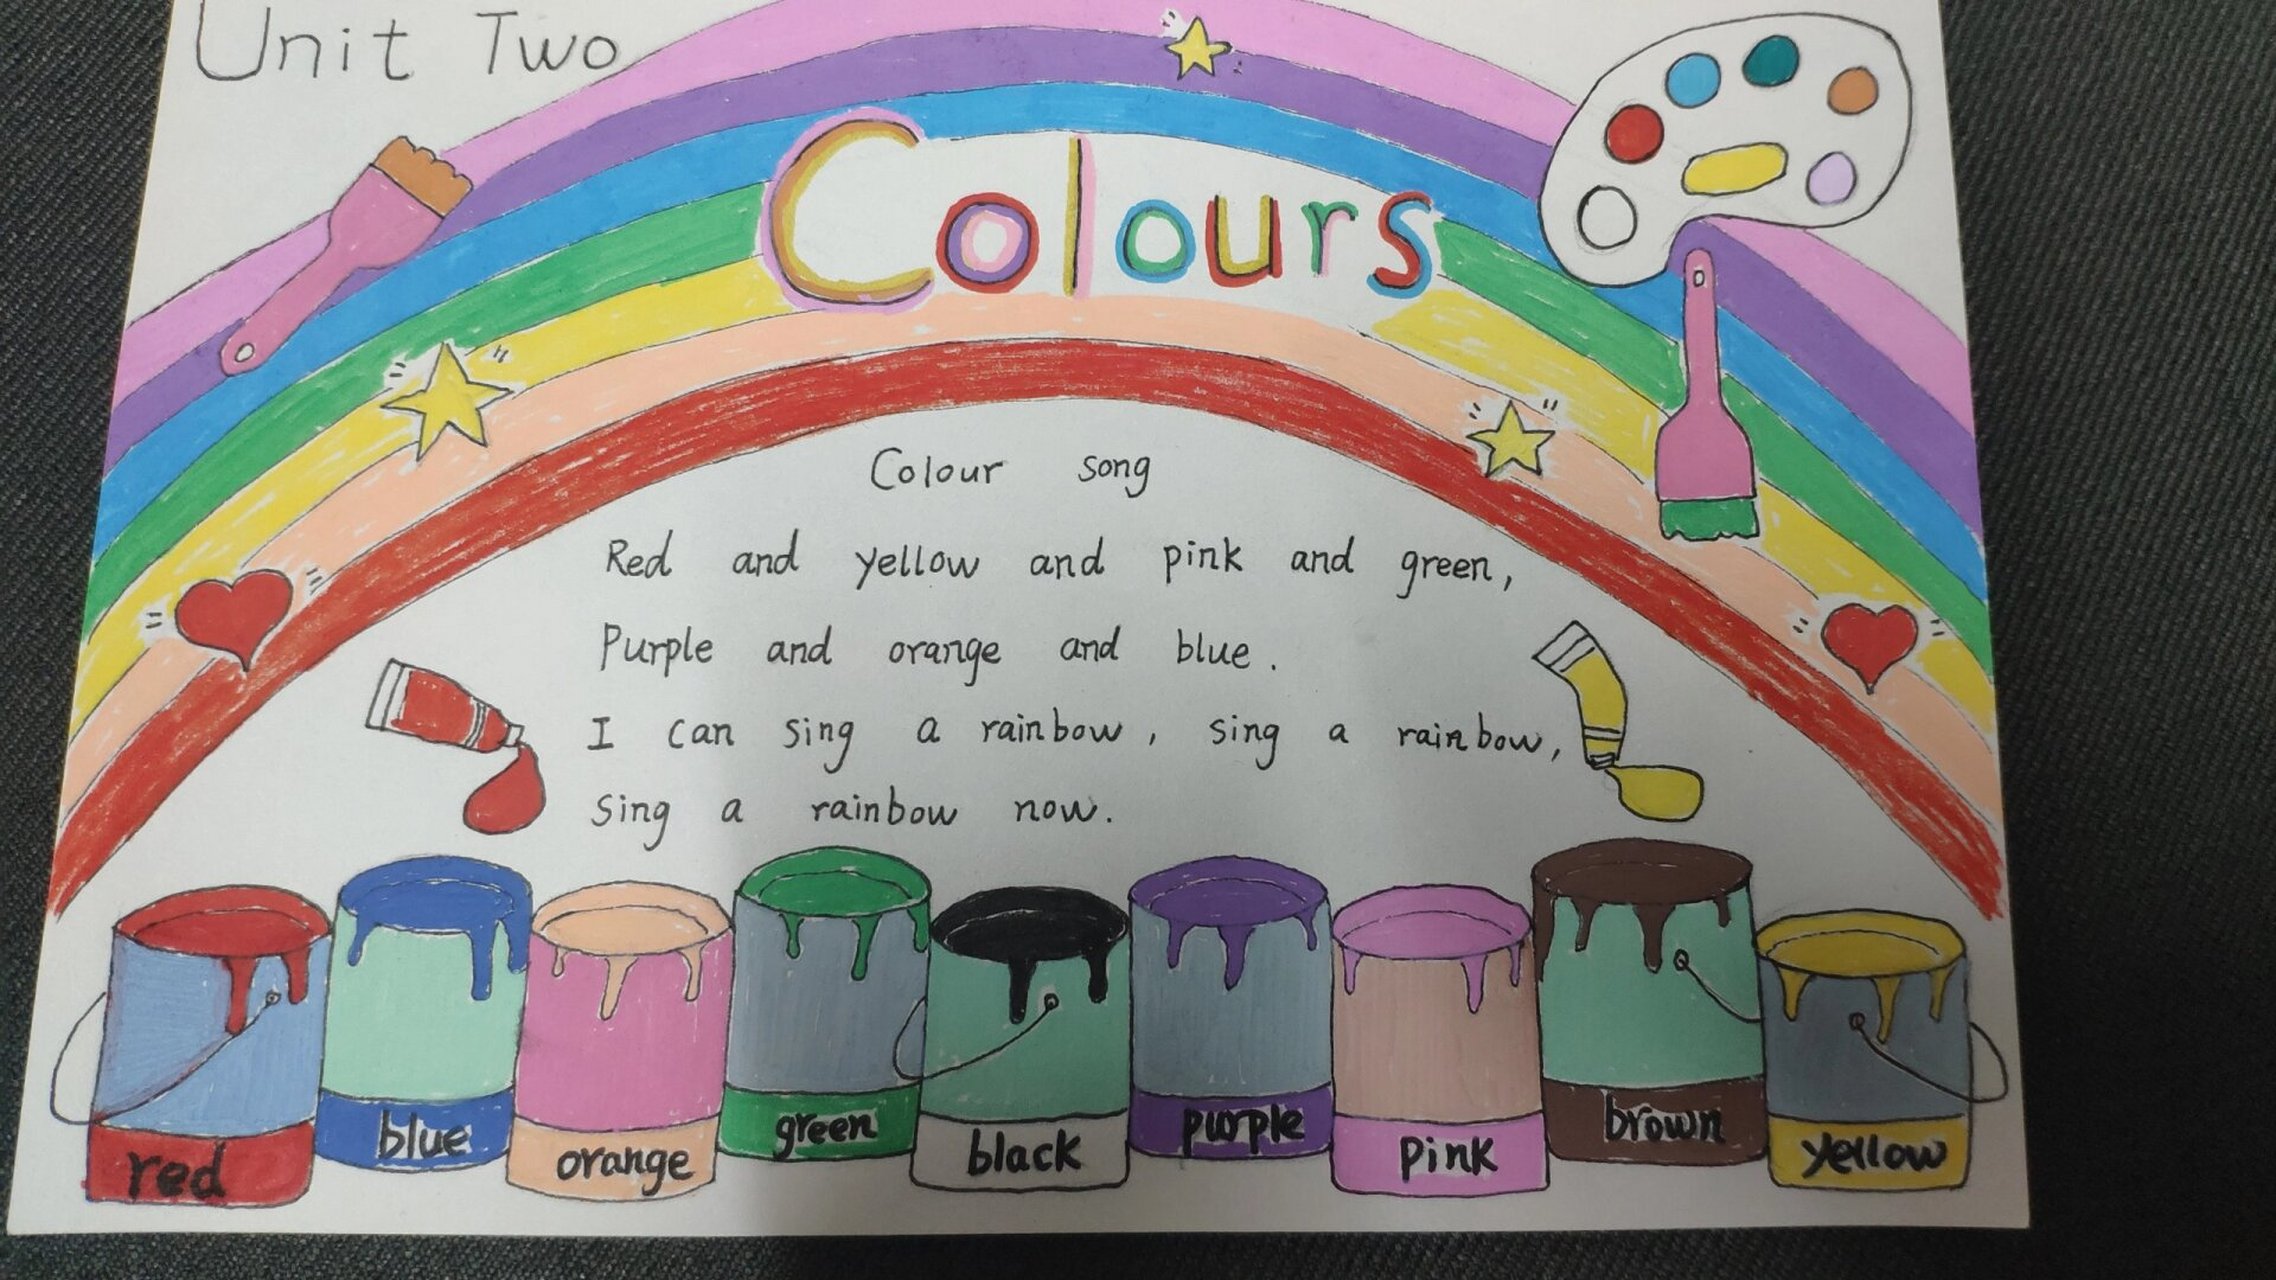 Unit Two
Colours
Colour song
Red and yellow and pink and green,
Purple and orange and blue.
I can sing a rainbow, sing a rainbow,
Sing a rainbow now.
red
blue
orange
green
black
purple
pink
brown
yellow